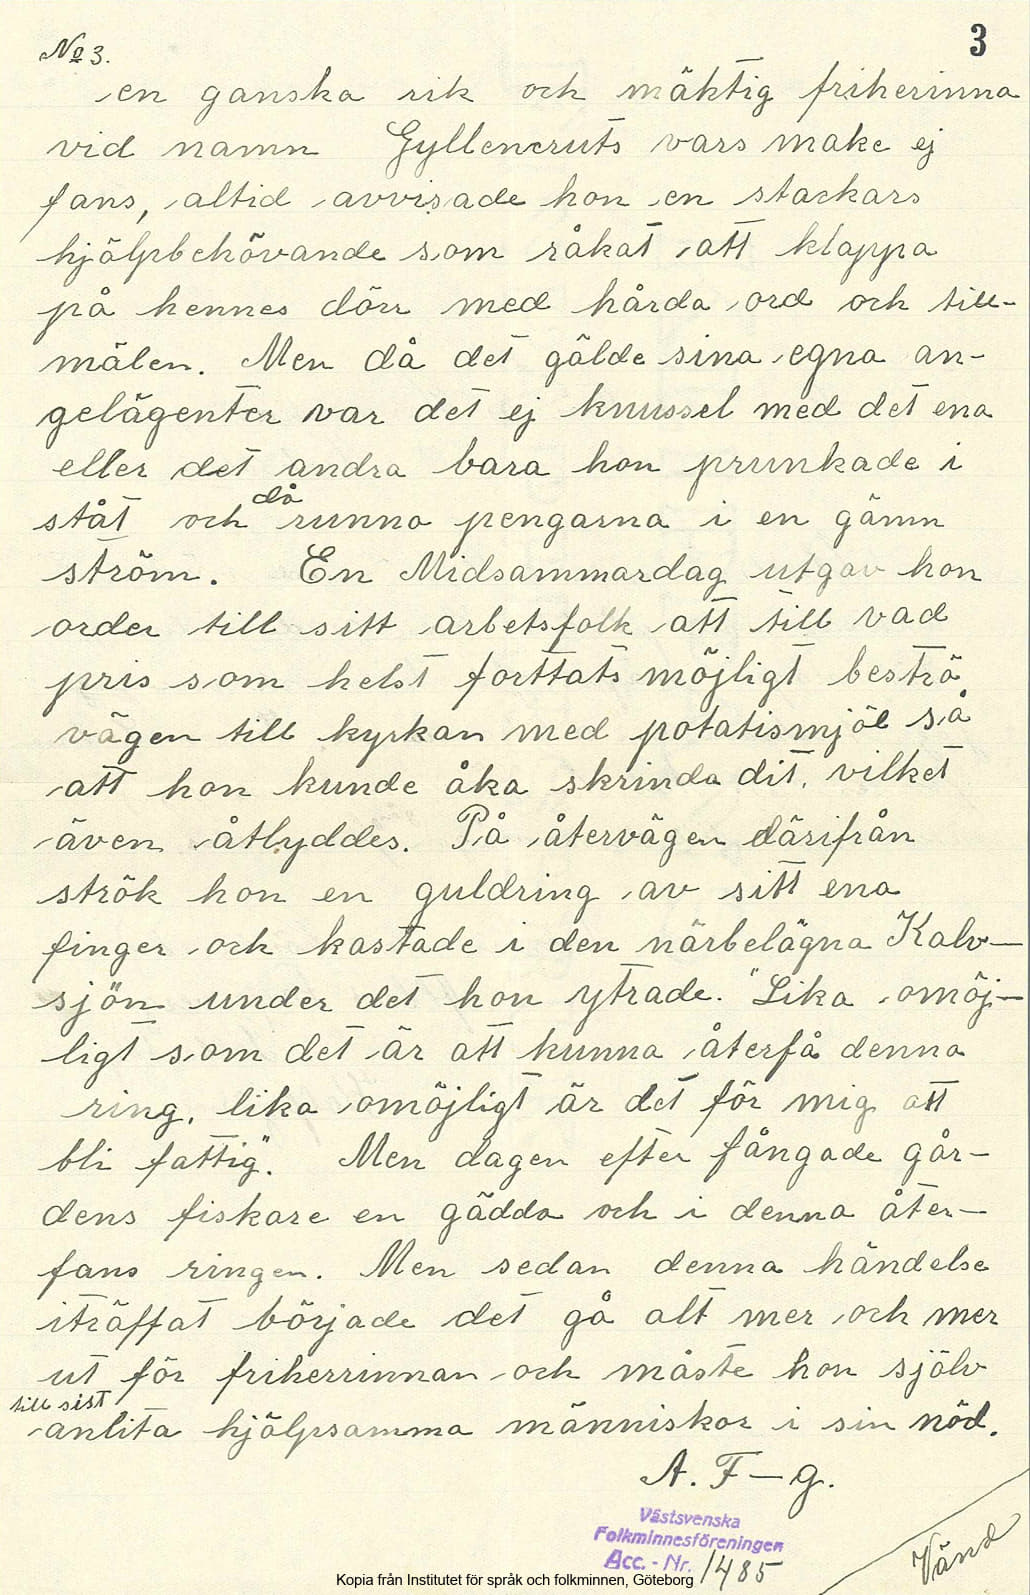 No 3.
3
en ganska rik och mäktig friherinna
vid namn Gyllencruts vars make ej
fans, altid avvisade hon en stackars
hjälpbehövande som råkat att klappa
på hennes dörr med hårda ord och till-
mälen. Men då det gälde sina egna an-
gelägenter var det ej knussel med det ena
eller det andra bara hon prunkade i
ståt och då runno pengarna i en gämn
ström. En Midsammardag utgav hon
order till sitt arbetsfolk att till vad
pris som helst forttats möjligt beströ
vägen till kyrkan med potatismjöl så
att hon kunde åka skrinda dit, vilket
även åtlyddes. På återvägen därifrån
strök hon en guldring av sitt ena
finger och kastade i den närbelägna Kalv-
sjön under det hon ytrade. "Lika omöj-
ligt som det är att kunna återfå denna
ring, lika omöjligt är det för mig att
bli fattig". Men dagen efter fångade går-
dens fiskare en gädda och i denna åter-
fans ringen. Men sedan denna händelse
iträffat började det gå alt mer och mer
ut för friherrinnan och måste hon själv
till sist
anlita hjälpsamma människor i sin nöd.
A. F-g.
Västsvenska
Folkminnesföreningen
Acc. - Nr. 1485
Vänd
Kopia från Institutet för språk och folkminnen, Göteborg